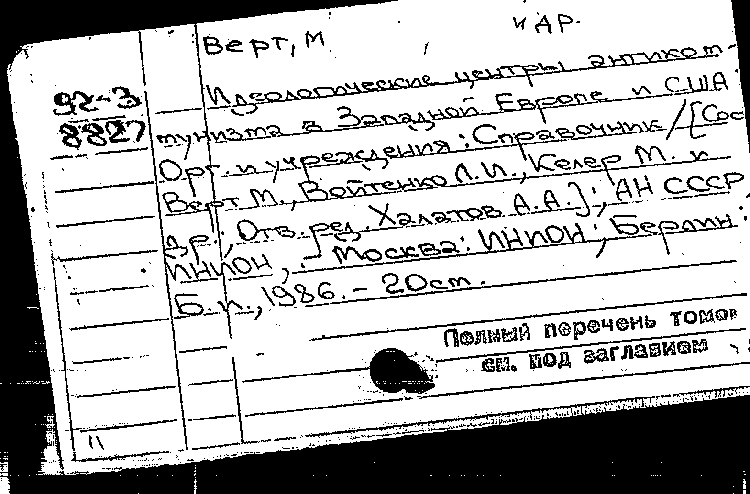 Верт, М и др.
92-3 Идеологические центры антиком-
8827 мунизма в Западной Европе и США:
Орг. и учреждения: Справочник/[Сос
Верт М., Войтенко Л.И., Келер М. и
др.; Отв. ред. Халатов А.А.]; АН СССР
ИНИОН, . - Москва: ИНИОН; Берлин:
Б.и., 1986. - 20см.
Полный перечень томов
см. под заглавием